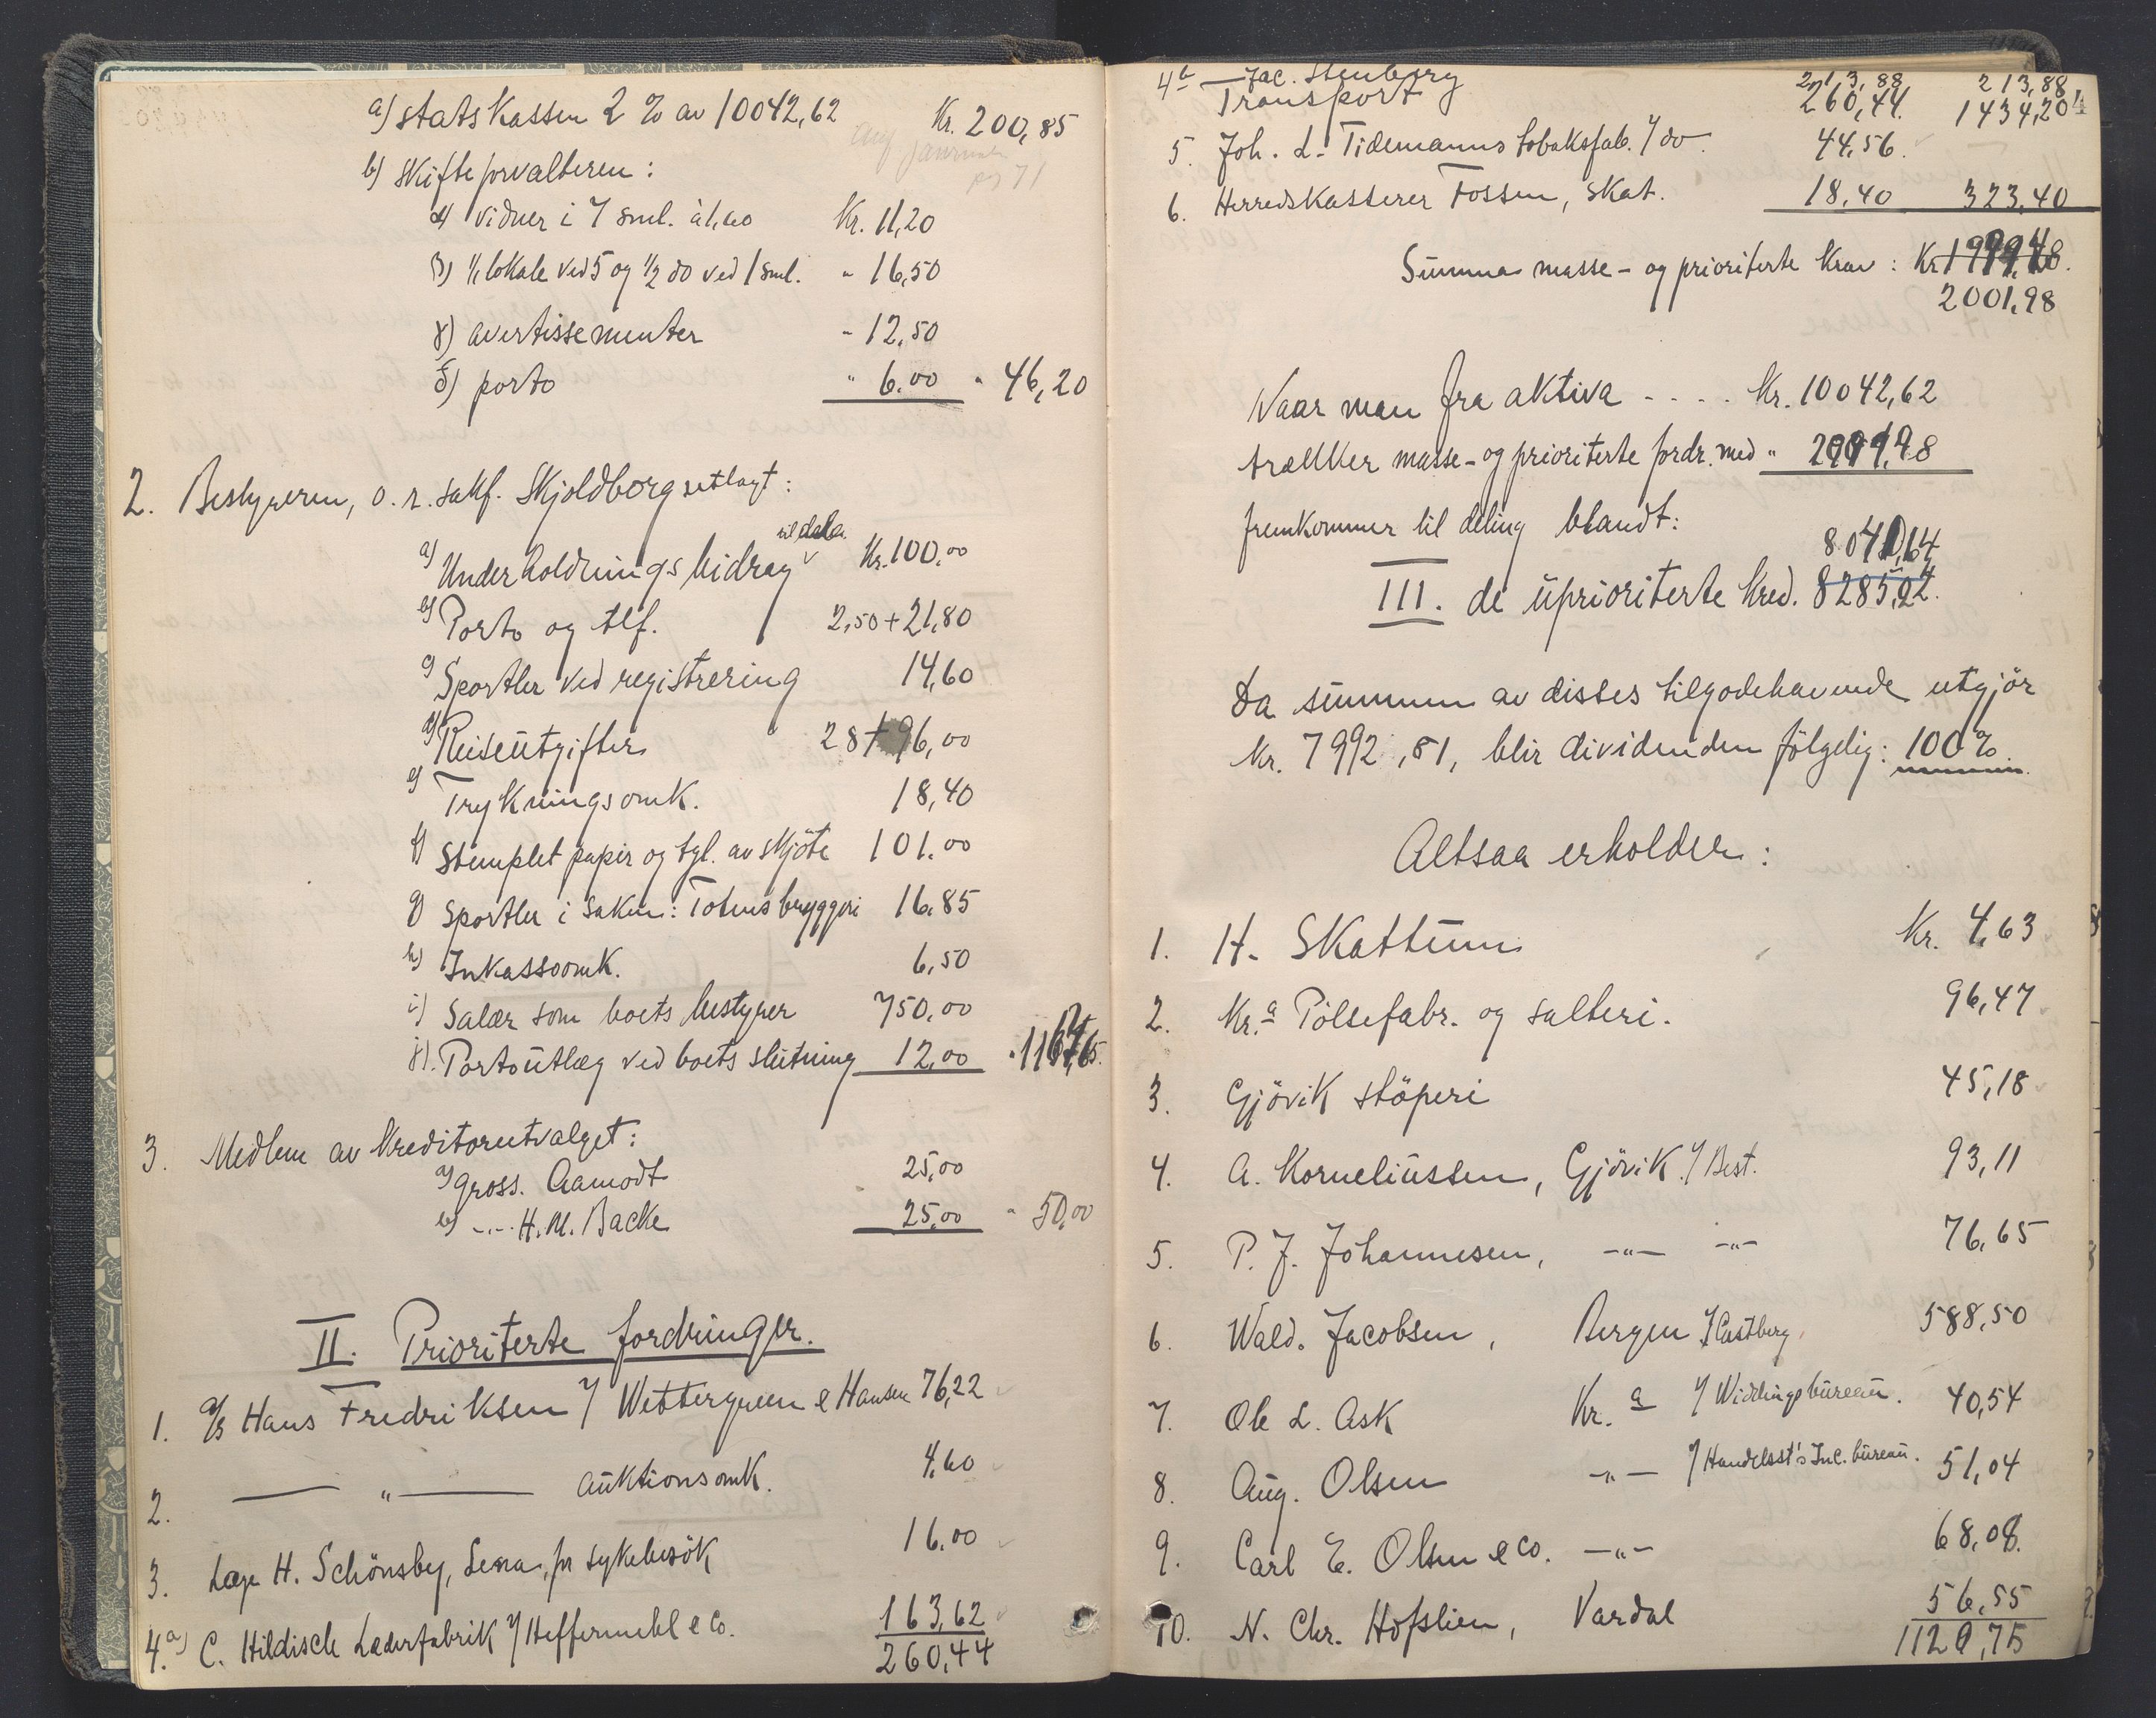 a) Statskassen 2 % av 10042,62 Kr. 200,85
b) Skifteforvalteren:
α) vidner i 7 sml. à 1,60 Kr. 11,20
β) 1/1 lokale ved 5 og 1/2 do ved 1 sml. " 16,50
γ) avertissementer " 12,50
δ) porto " 6.00 " 46,20
2. Bestyreren, o.r.sakf. Skjoldborg utlagt:
a) Underholdningsbidrag Kr. 100,00
b) Porto og tlf. 2,50 + 21,80
c) Sportler ved registrering 14,60
d) Reiseutgifter 28 + 96,00
e) Trykningsomk. 18,40
f) Stemplet papir og tgl. av skjöte 101.00
g) Sportler i saken: Totens bryggeri 16.85
h) Inkassoomk. 6,50
i) Salær som boets bestyrer 750,00
j). Portoutlæg ved boets slutning 12,00 " 1167,65
3. Medlem av kreditorutvalget:
a) Gross. Aamodt 25,00
b) -"- H.M. Backe 25,00 " 50,00
II. Prioriterte fordringer.
1. A/S Hans Fredriksen v/ Wettergreen & Hansen 76,22
2. — " — Auktionsomk. 4,60
3. Læge H. Schönsby, Lena, for sykebesök 16.00
4. a) C. Hildisch Læderfabrik v/ Heffermehl & Co. 163,62
260,44
4 b — Jac. Stenberg 213,88 213,88
Transport 260,44. 1434,20
5. Joh. L. Tidemanns tobaksfab. v/ do. 44,56
6. Herredskasserer Fossen, skat. 18,40 323,40
Summa masse- og prioriterte krav: Kr.
2001,98
Naar man fra aktiva . . . . Kr. 10042,62
trækker masse- og prioriterte fordr. med " 2001,98
fremkommer til deling blandt:
8040,64
III. de uprioriterte kred. 8285,24.
Da summen av disses tilgodehavende utgjör
Kr. 7992,81, blir dividenden fölgelig: 100 %.
Altsaa erholder:
1. H. Skattum Kr. 4,63
2. Kr.a Pölsefabr. og salteri. 96,47
3. Gjövik Stöperi 45,18
4. A. Korneliussen, Gjövik v/ Best. 93,11
5. P. J. Johannesen, —"— —"— 76,65
6. Wald. Jacobsen, Bergen v/ Castberg 588,50
7. Ole L. Ask Kr.a v/ Widdings bureau. 40,54
8. Aug. Olsen —"— v/ Handelsst's Inc. bureau. 51,04
9. Carl E. Olsen & Co. —"— 68,08.
10. N. Chr. Hofslien, Vardal 56,55
1120,75